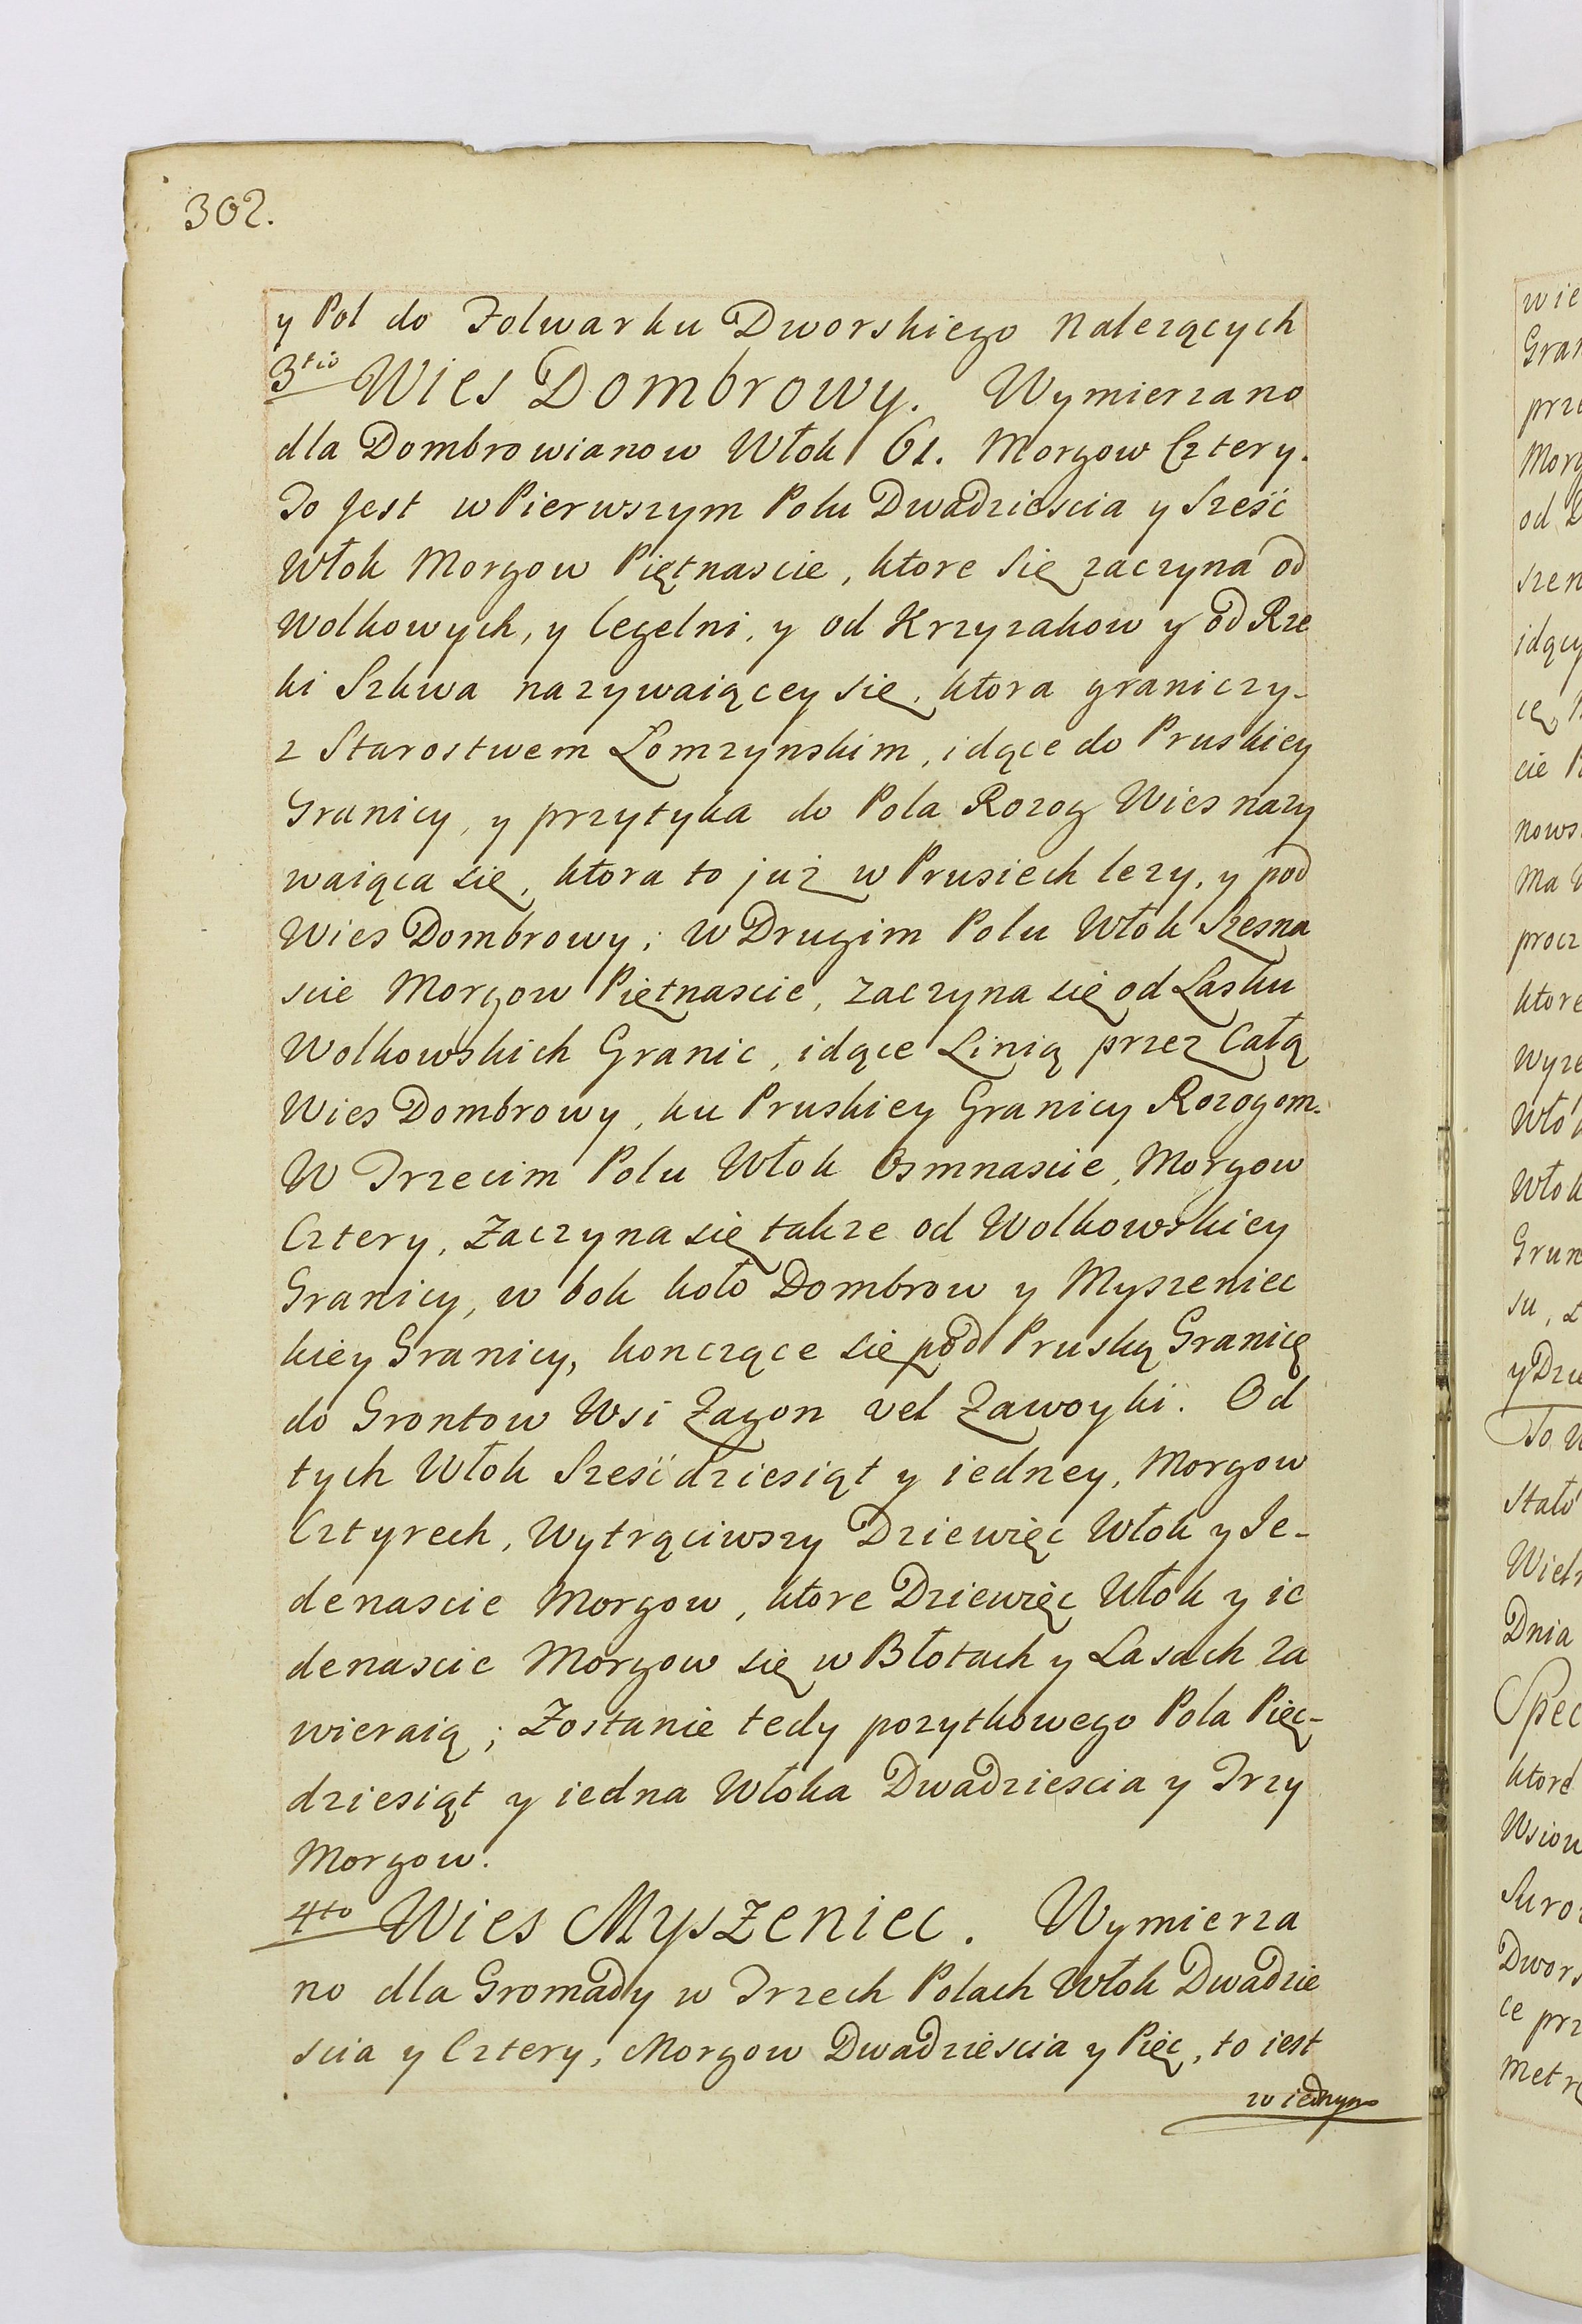 302.
y Pol do Folwarku Dworskiego Nalezących
3tio Wies Dombrowy. Wymierzano
dla Dombrowianow Włok 61. Morgow Cztery.
To Jest w Pierwszym Polu Dwadziescia y Sześć
Włok Morgow Piętnascie, ktore się zaczyna od
Wolkowych, y Cegelni, y od Krzyzakow y od Rze
ki Szkwa nazywaiącey się, ktora graniczy-
z Starostwem Łomzynskim, idące do Pruskiey
Granicy, y przytyka do Pola Rozog Wies nazy
waiąca się, ktora to już w Prusiech lezy, y pod
Wies Dombrowy; w Drugim Polu Włok Szesna
scie Morgow Piętnascie, zaczyna się od Lasku
Wolkowskich Granic, idące Linią przez Całą
Wies Dombrowy, ku Pruskiey Granicy Rozogom.
W Trzecim Polu Włok Osmnascie, Morgow
Cztery, Zaczyna się takze od Wolkowskiey
Granicy, w bok koło Dombrow y Myszeniec
kiey Granicy, konczące się pod Pruską Granicę
do Grontow Wsi Zagon vel Zawoyki. Od
tych Włok Sześćdziesiąt y iedney, Morgow
Cztyrech, Wytrąciwszy Dziewięc Włok y Je-
denascie Morgow, ktore Dziewięc Włok y ie
denascie Morgow się w Błotach y Lasach za
wieraią; Zostanie tedy pozytkowego Pola Pięc-
dziesiąt y iedna Włoka Dwadziescia y Trzy
Morgow.
4to Wies Myszeniec. Wymierza
no dla Gromady w Trzech Polach Włok Dwadzie
scia y Cztery, Morgow Dwadziescia y Pięc, to iest
w iednym
wie
Gran
prze
Morg
od
szen
idący
cę
cie
nows
Ma
procz
ktore
Wyze
Włók
Włok
Grun
su,
y Dzie
To
Stało
Wiel
Dnia
Spec
ktore
Wsiow
Suro
Dwors
ce prz
Metr